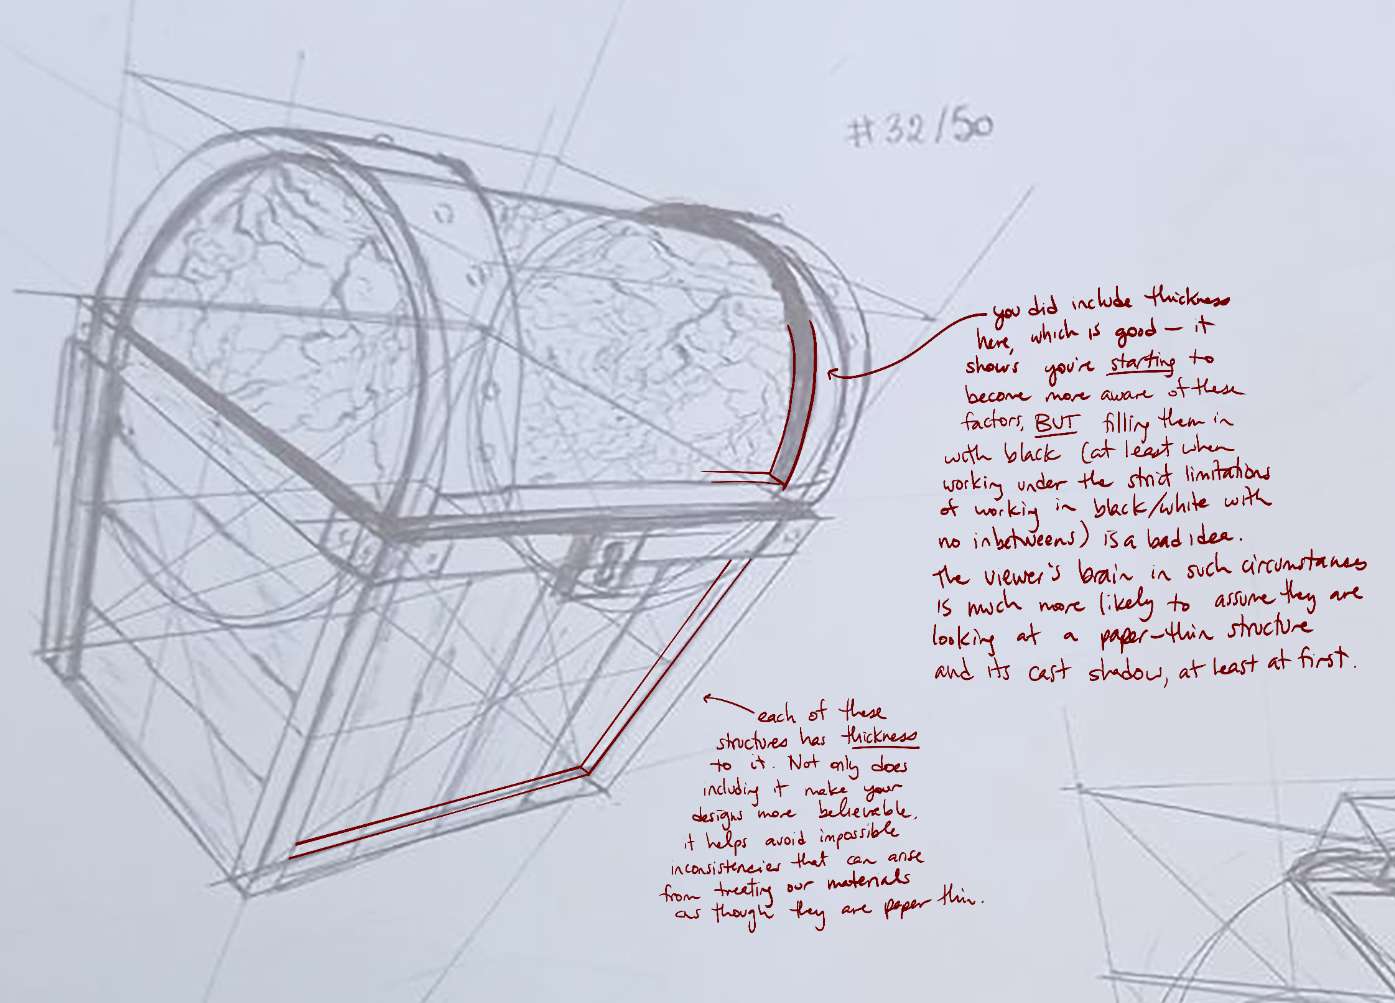 #32/50
you did include thickness
here, which is good — it
shows you're starting to
become more aware of these
factors, BUT filling them in
with black (at least when
working under the strict limitations
of working in black/white with
no inbetweens) is a bad idea.
The viewer's brain in such circumstances
is much more likely to assume they are
looking at a paper-thin structure
and its cast shadow, at least at first.
each of these
structures has thickness
to it. Not only does
including it make your
designs more believable,
it helps avoid impossible
inconsistencies that can arise
from treating our materials
as though they are paper thin.